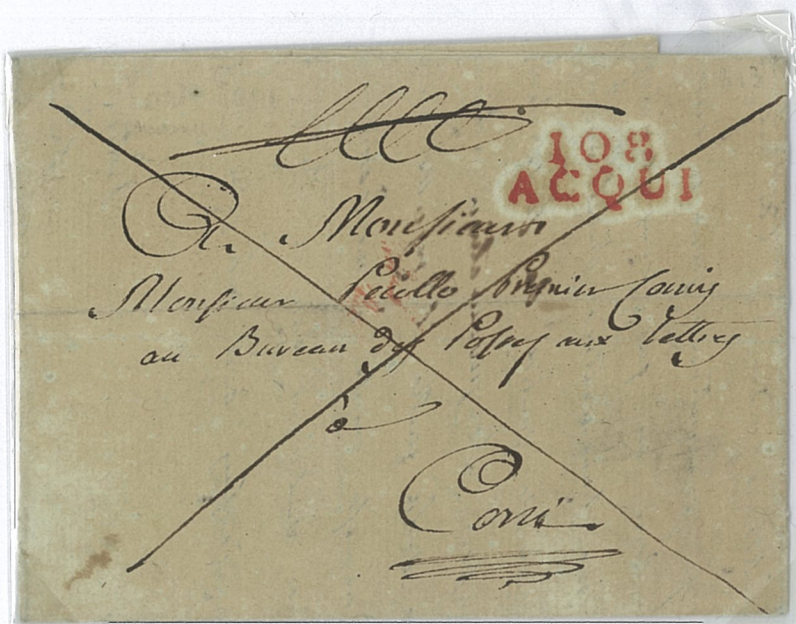 108
ACQUI
A Monsieur
Monsieur Premier Comis
au Bureau des Postes aux Lettres
à
Coni